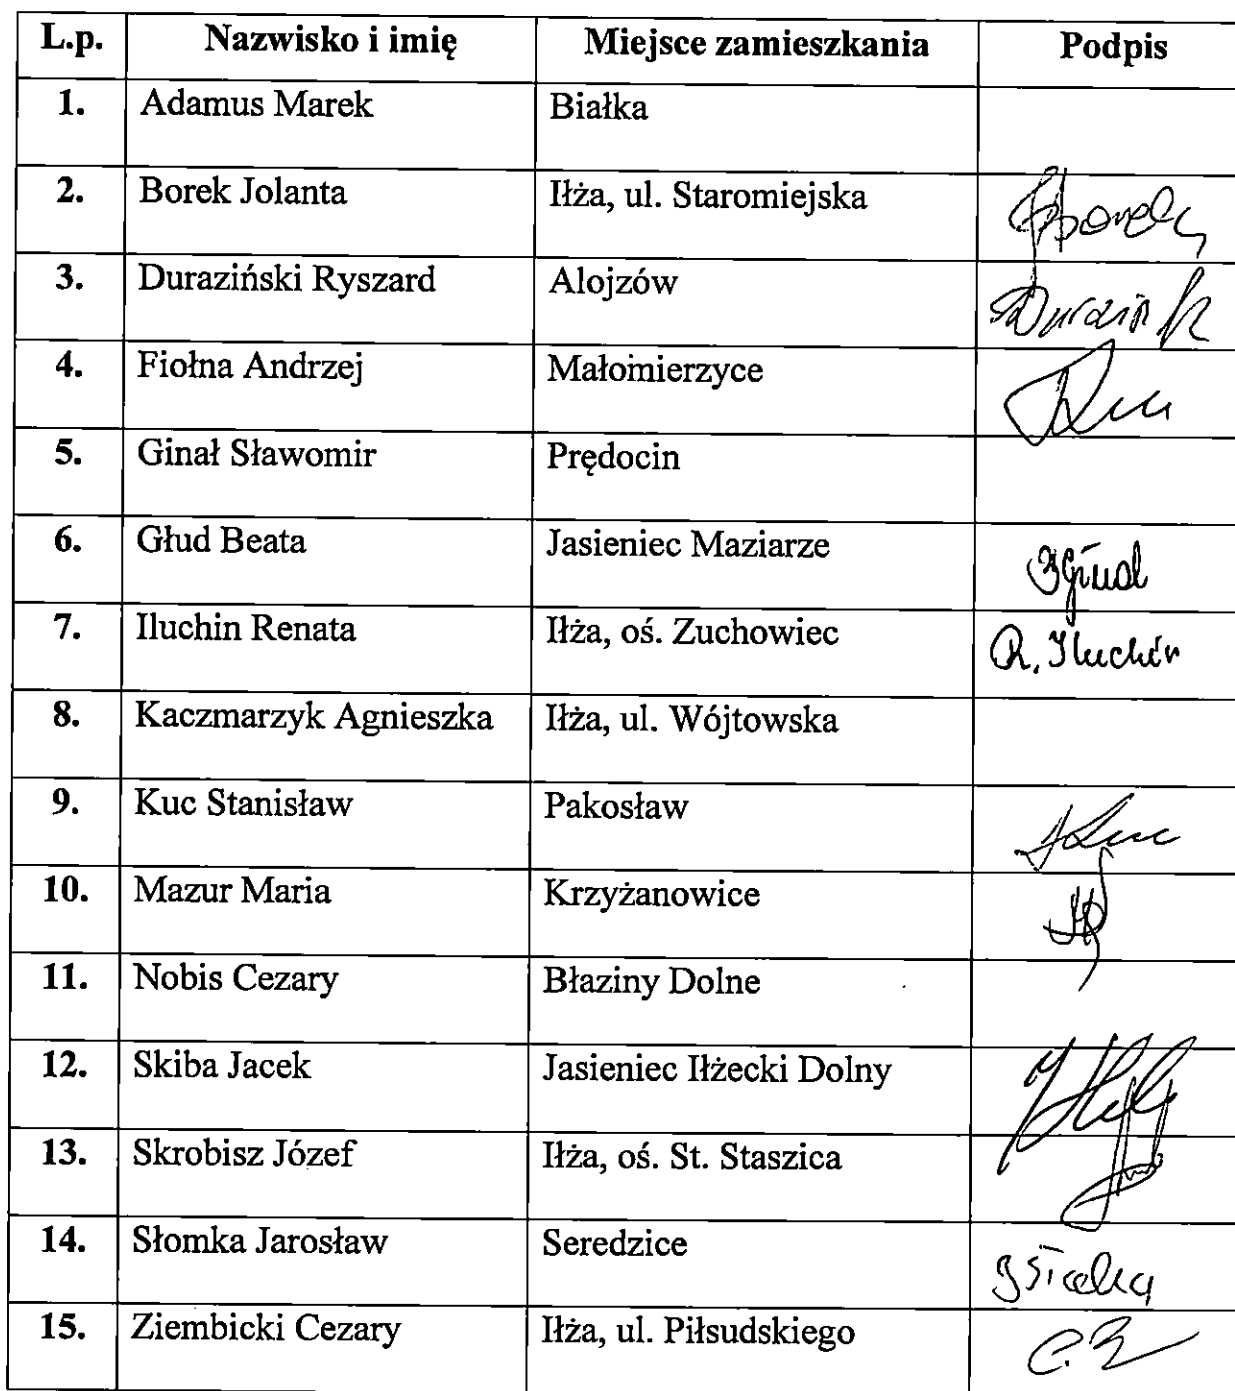 L.p. Nazwisko i imię Miejsce zamieszkania Podpis
1. Adamus Marek Białka
2. Borek Jolanta Iłża, ul. Staromiejska
3. Duraziński Ryszard Alojzów
4. Fiołna Andrzej Małomierzyce
5. Ginał Sławomir Prędocin
6. Głud Beata Jasieniec Maziarze BGłud
7. Iluchin Renata Iłża, oś. Zuchowiec R. Iluchin
8. Kaczmarzyk Agnieszka Iłża, ul. Wójtowska
9. Kuc Stanisław Pakosław
10. Mazur Maria Krzyżanowice
11. Nobis Cezary Błaziny Dolne
12. Skiba Jacek Jasieniec Iłżecki Dolny
13. Skrobisz Józef Iłża, oś. St. Staszica
14. Słomka Jarosław Seredzice
15. Ziembicki Cezary Iłża, ul. Piłsudskiego